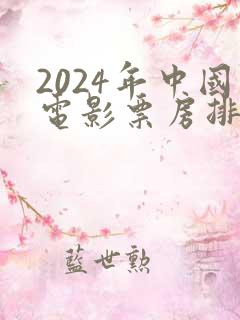 2024年中國
電影票房排
藍世勲